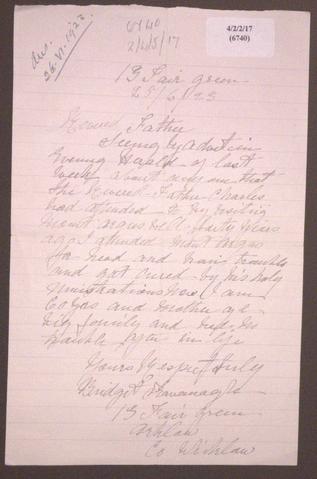 ans.
26.VI.1923
6740
2/4/5/17
4/2/2/17
(6740)
13 Fair green
25/6/23
Reverd Father
Seeing by Advert in
Evening Herald of last
week about any one that
the Reverd Father Charles
had attended to by visiting
Mount Argus well thirty years
ago I attended Mount Argus
for head and hair trouble
and got cured by his holy
ministrations Now I am
and mother of
big family and had no
trouble after in life
Yours Respectfully
Bridget Kavanagh
13 Fair green
Arklow
Co Wicklow